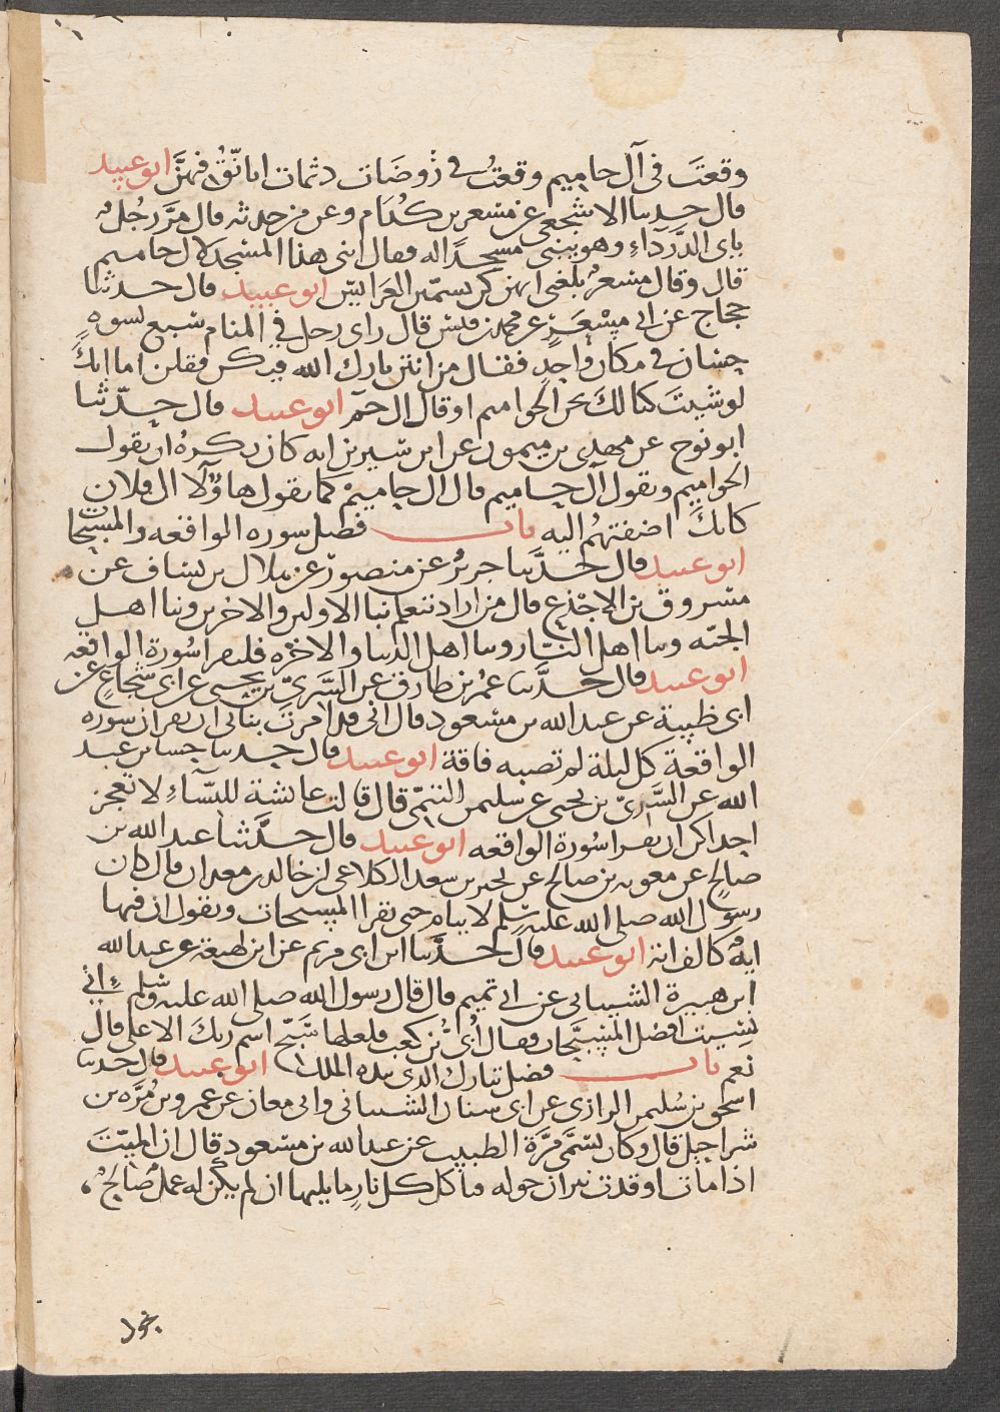 وقعتَ في آل حاميم وقعتُ في رَوضَات دمثات اتانّقُ فيهنَّ ابو عبيد
قال حدثنا الاشجعي عن مسعر بن كدام وعن من حدثه قال مرَّ رجُل
بابى الدَّردَاءِ وهو يبنى مسجدًا له فقال ابنى هذا المسجد لال حاميم
قال وقال مسعرٌ بلغنى انهن كن يسمّين العَرايس ابو عبيد قال حدثنا
حجاج عن ابى مِسْعَرٍ عن محمد بن قيس قال راى رجل في المنام سبع نسوةٍ
حسان في مكان واحدٍ فقال من انتن بارك الله فيكن فقلن اما انكَ
لو شيتَ كنا لكَ نحن الحواميم او قال ال حمٓ ابو عبيد قال حدّثنا
ابو نوح عن مهدى بن ميمون عن ابن سيرين انه كان يكرهُ ان يقول
الحواميم ويقول آل حاميم قال ال حاميم كما يقول هاؤلا ال فلان
كانكَ اضفتهُم اليه باب فضل سوره الواقعه والمسبّحات
ابو عبيد قال حدَّثنا جريرٌ عن منصور عن هلال بن يساف عن
مسروق بن الاجْدَع قال من اراد تعلم نبا الاولين والاخرين ونبا اهل
الجنّه ونبا اهل النّار ونبا اهل الدنيا والاخره فليقرا سُورة الواقعه
ابو عبيد قال حدَّثنا عمُر بن طارق عن السَّريّ بن يحيى عن ابى شُجاعٍ عن
ابى ظبية عن عبد الله بن مسعود قال انى قد امرتُ بناتى ان يقران سوره
الواقعة كل ليلة لم تصبه فاقة ابو عبيد قال حدثنا حسان بن عبد
الله عن السَّريّ بن يحيى عن سليمن التيمّي قال قالت عائشة للنسّاءِ لا تعجز
احداكن ان تقرا سُورة الواقعه ابو عبيد قال حدَّثنا عبد الله بن
صالحٍ عن معويه بن صالح عن بحير بن سعد الكلاعى عن خالد بن معدان قال كان
رسول الله صلى الله عليه وسلم لا ينام حتى يقرا المسبحات ويقول ان فيها
ايةً كالف اية ابو عبيد قال حدَّثنا ابن ابى مريم عن ابن لهيعة عن عبد الله
ابن هبيرة الشيبانى عن ابى تميم قال قال رسول الله صلى الله عليه وسلم انى
نسيت افضل المسبّحات فقال أُبىّ بن كعب فلعلها سَبّح اسم ربكَ الاعلى قال
نعم باب فضل تبارك الذى بيده الملك ابو عبيد قال حدثنا
اسحق بن سُليمن الرازى عن ابى سنان الشيبانى وابى معاذ عن عمرو بن مُرَّه بن
شراحيل قال وكان يسَمَّى مُرَّة الطيب عن عبد الله بن مسعود قال ان الميّتَ
اذا مات اوقدت نيران حوله فتاكل كل نارٍ ما يليها ان لم يكن له عمل صالحٌ
يحول